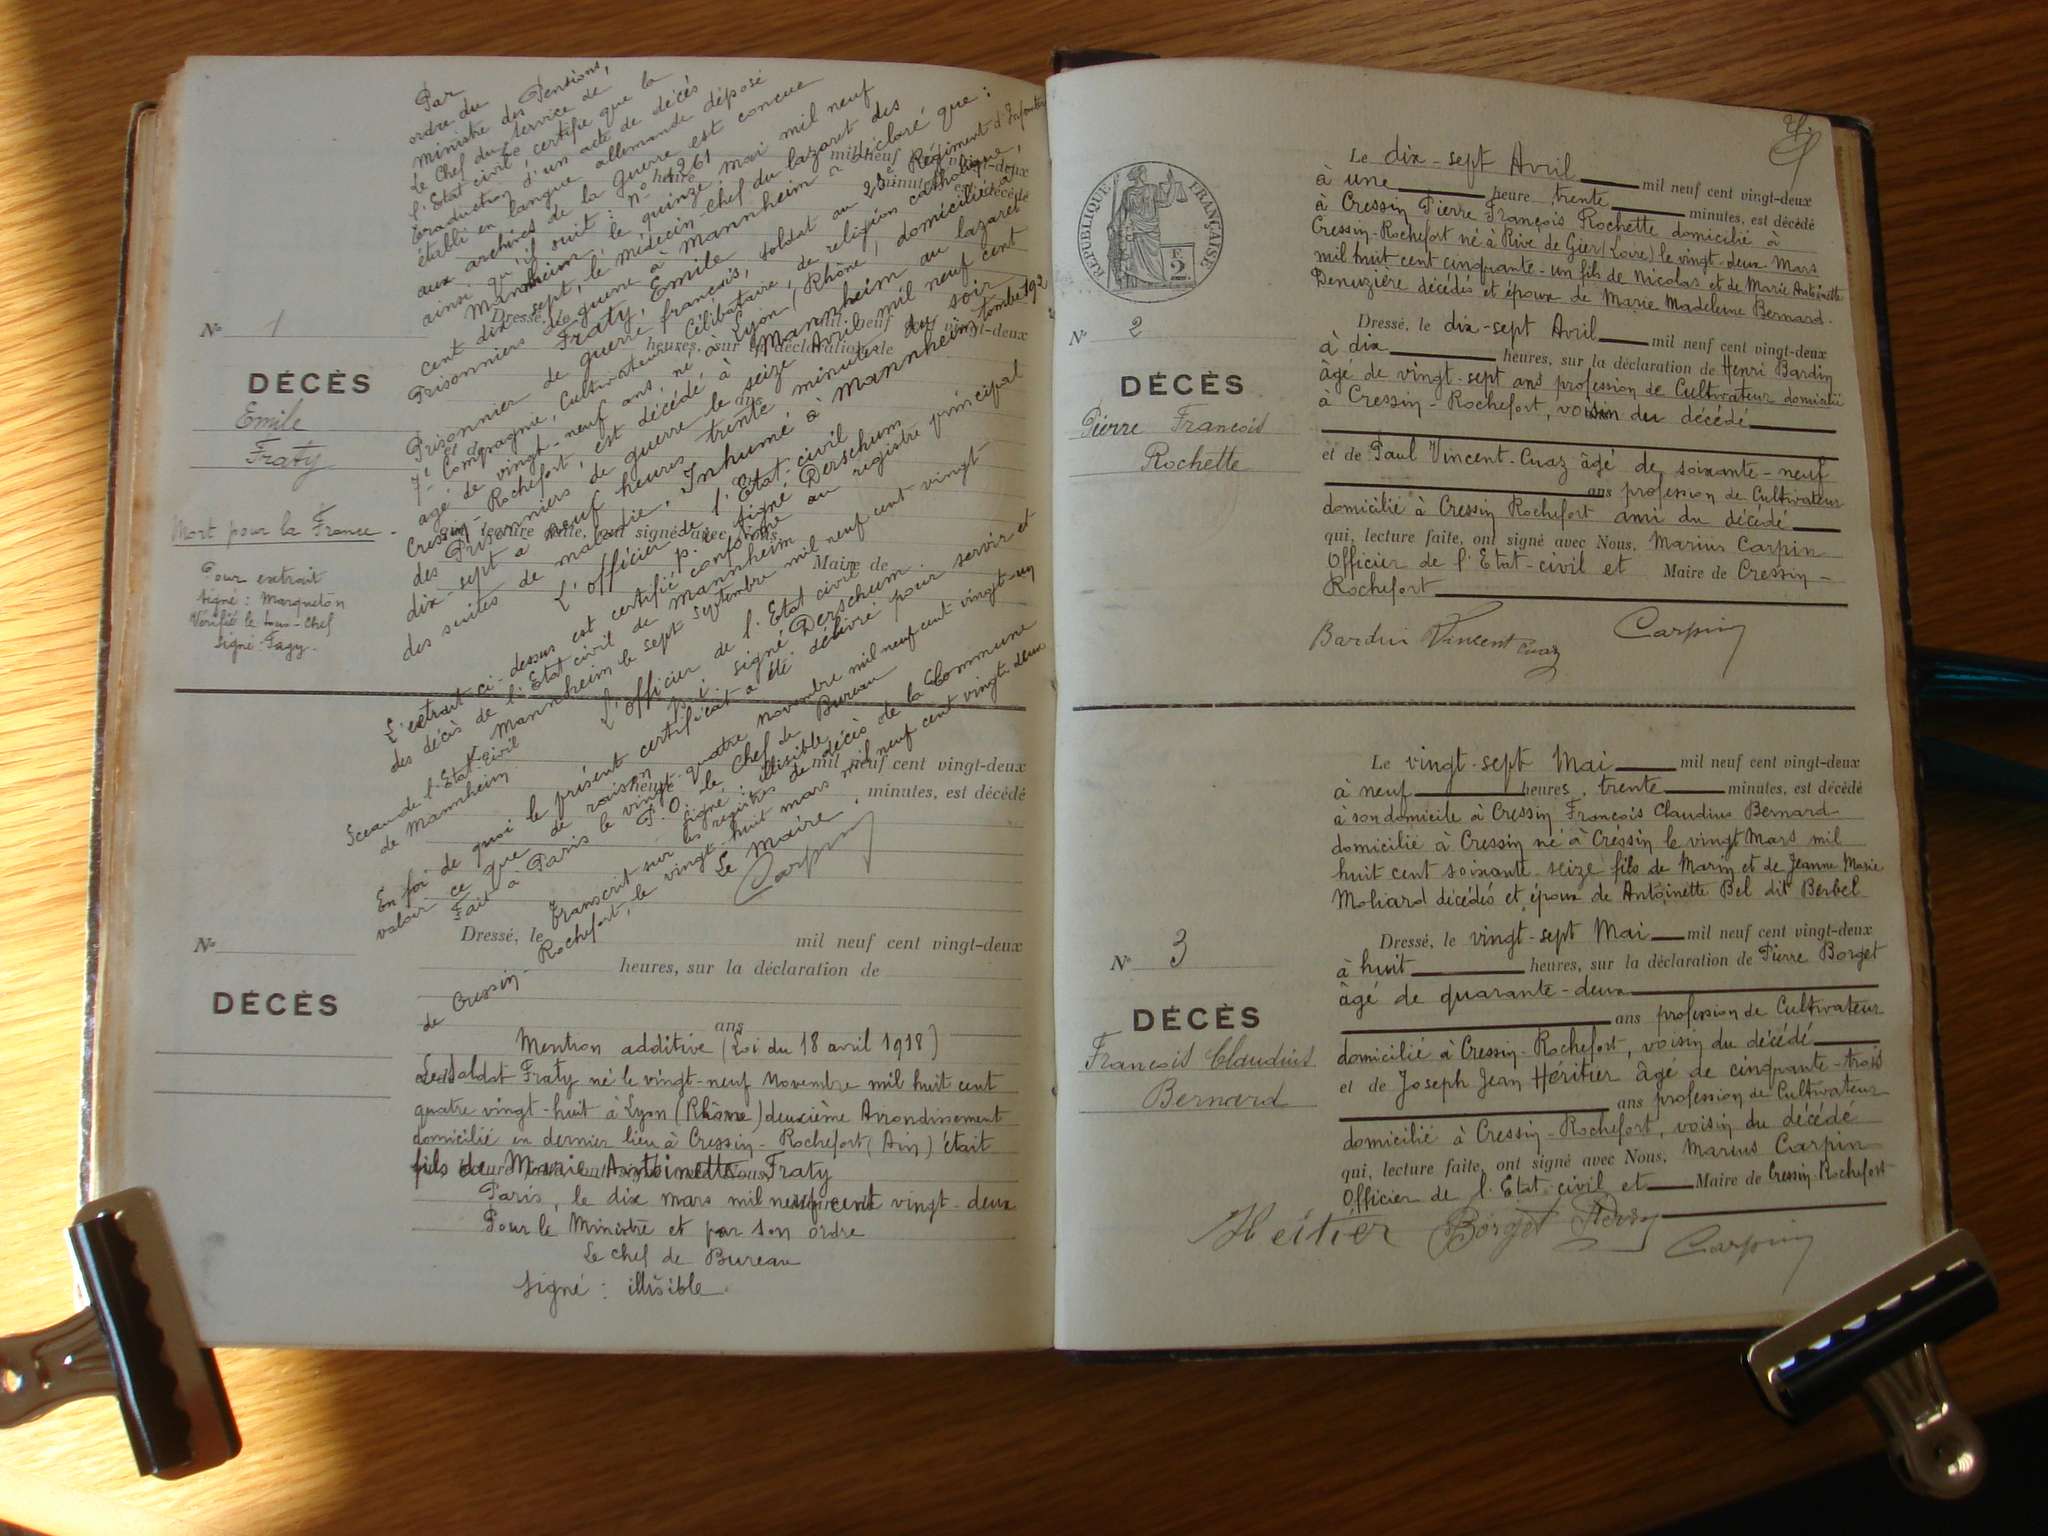 Par
ordre du
Ministre des Pensions,
le Chef du Service de
l'Etat civil certifie que la
traduction d'un acte de décès
établi en langue allemande déposé
aux archives de la Guerre est concue
ainsi qu'il suit : N° 1261
Mannheim, le quinze mai mil neuf
cent dix sept, le Médecin-chef du lazaret des
Prisonniers de guerre à Mannheim a déclaré que :
Fraty, Emile, soldat au 23e Régiment d'Infanterie
Prisonnier de guerre français,
7e Compagnie, Cultivateur, Célibataire, de religion catholique,
âgé de vingt-neuf ans, né à Lyon (Rhône), domicilié à
Cressin-Rochefort, est décédé à Mannheim au lazaret
des Prisonniers de guerre le seize Avril mil neuf cent
dix-sept à neuf heures trente minutes du soir
des suites de maladie, Inhumé à Mannheim, tombe 192
L'officier de l'Etat-civil
p. signé Derschum
L'extrait ci-dessus est certifié conforme au registre principal
des décès de l'Etat civil de Mannheim
Mannheim le sept septembre mil neuf cent vingt
L'officier de l'Etat civil
p.i. signé Derschum.
Sceau de l'Etat-civil
de Mannheim
En foi de quoi le présent certificat a été délivré pour servir et
valoir ce que de raison
Fait à Paris le vingt-quatre novembre mil neuf cent vingt-un
P.O. le Chef de Bureau
signé : illisible
Transcrit sur les registres de décès de la Commune
de Cressin-Rochefort, le vingt-huit mars mil neuf cent vingt-deux
Le Maire,
Carpin
N° 1
DÉCÈS
Emile
Fraty
Mort pour la France -
Pour extrait
signé : Marqueton
Vérifié le Sous-Chef
signé Fagy.
mil neuf cent vingt-deux
heure
minutes, est décédé
Dressé, le
mil neuf cent vingt-deux
heures, sur la déclaration de
ans
qui, lecture faite, ont signé avec Nous,
Maire de
mil neuf cent vingt-deux
heure
minutes, est décédé
N°
DÉCÈS
Dressé, le
mil neuf cent vingt-deux
heures, sur la déclaration de
ans
Mention additive (Loi du 18 avril 1918)
Le Soldat Fraty né le vingt-neuf Novembre mil huit cent
quatre vingt-huit à Lyon (Rhône) deuxième Arrondissement
domicilié en dernier lieu à Cressin-Rochefort (Ain) était
fils de Marie Antoinette Fraty
Paris, le dix mars mil neuf cent vingt-deux
Pour le Ministre et par son ordre
Le chef de Bureau
signé : illisible
RÉPUBLIQUE FRANÇAISE
F.
2
N° 2
DÉCÈS
Pierre François
Rochette
Le dix-sept Avril mil neuf cent vingt-deux
à une heure trente minutes, est décédé
à Cressin Pierre François Rochette domicilié à
Cressin-Rochefort né à Rive de Gier (Loire) le vingt-deux Mars
mil huit cent cinquante-un fils de Nicolas et de Marie Antoinette
Denuzière décédés et époux de Marie Madeleine Bernard.
Dressé, le dix-sept Avril mil neuf cent vingt-deux
à dix heures, sur la déclaration de Henri Bardin
âgé de vingt-sept ans profession de Cultivateur domicilié
à Cressin-Rochefort, voisin du décédé
et de Paul Vincent-Cuaz âgé de soixante-neuf
ans profession de Cultivateur
domicilié à Cressin Rochefort ami du décédé
qui, lecture faite, ont signé avec Nous, Marius Carpin
Officier de l'Etat-civil et Maire de Cressin-
Rochefort
Bardin Vincent Cuaz Carpin
N° 3
DÉCÈS
François Claudius
Bernard
Le vingt-sept Mai mil neuf cent vingt-deux
à neuf heures, trente minutes, est décédé
à son domicile à Cressin François Claudius Bernard
domicilié à Cressin né à Cressin le vingt Mars mil
huit cent soixante seize fils de Marin et de Jeanne Marie
Moliard décédés et époux de Antoinette Bel dit Berbel
Dressé, le vingt-sept Mai mil neuf cent vingt-deux
à huit heures, sur la déclaration de Pierre Borget
âgé de quarante-deux
ans profession de Cultivateur
domicilié à Cressin-Rochefort, voisin du décédé
et de Joseph Jean Héritier âgé de cinquante-trois
ans profession de Cultivateur
domicilié à Cressin-Rochefort, voisin du décédé
qui, lecture faite, ont signé avec Nous, Marius Carpin
Officier de l'Etat-civil et Maire de Cressin-Rochefort
Héritier Borget Pierre Carpin